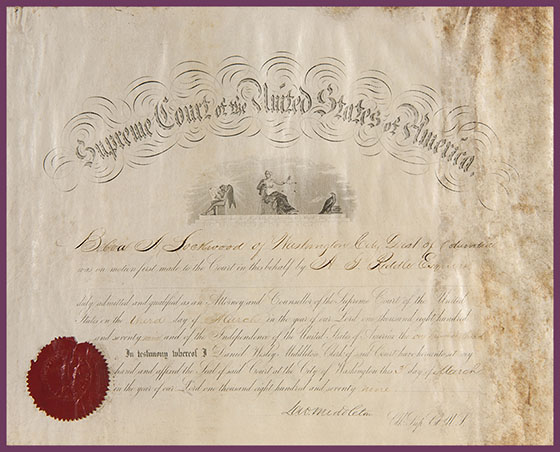 Supreme Court of the United States of America.
Belva A Lockwood of Washington City, Dist of Columbia
was on motion first made to the Court in this behalf by A. G. Riddle Esquire
duly admitted and qualified as an Attorney and Counsellor of the Supreme Court of the United
States on the third day of March in the year of our Lord one thousand eight hundred
and seventy nine and of the Independence of the United States of America the one hundred and
In testimony whereof I Daniel Wesley Middleton Clerk of said Court have hereunto set my
hand and affixed the Seal of said Court at the City of Washington this 3d day of March
in the year of our Lord one thousand eight hundred and seventy nine
D. W. Middleton
Clk Sup Ct U. S.